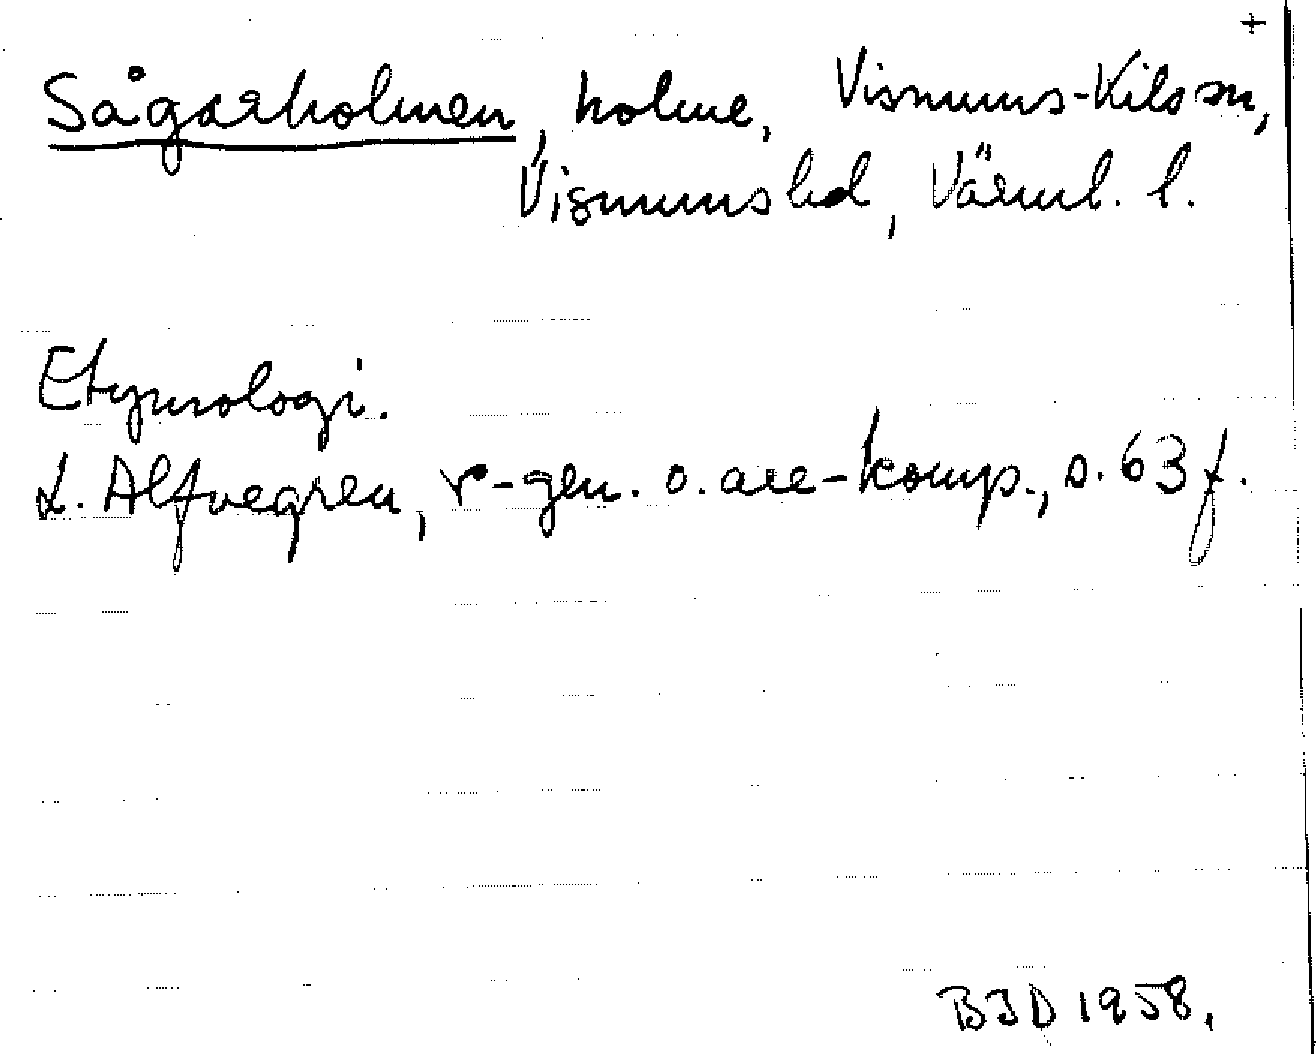 +
Sågarholmen, holme, Visnums-Kils sn,
Visnums hd, Värml. l.
Etymologi.
L. Alfvegren, r-gen. o. are-komp., s. 63 f.
BJD 1958.